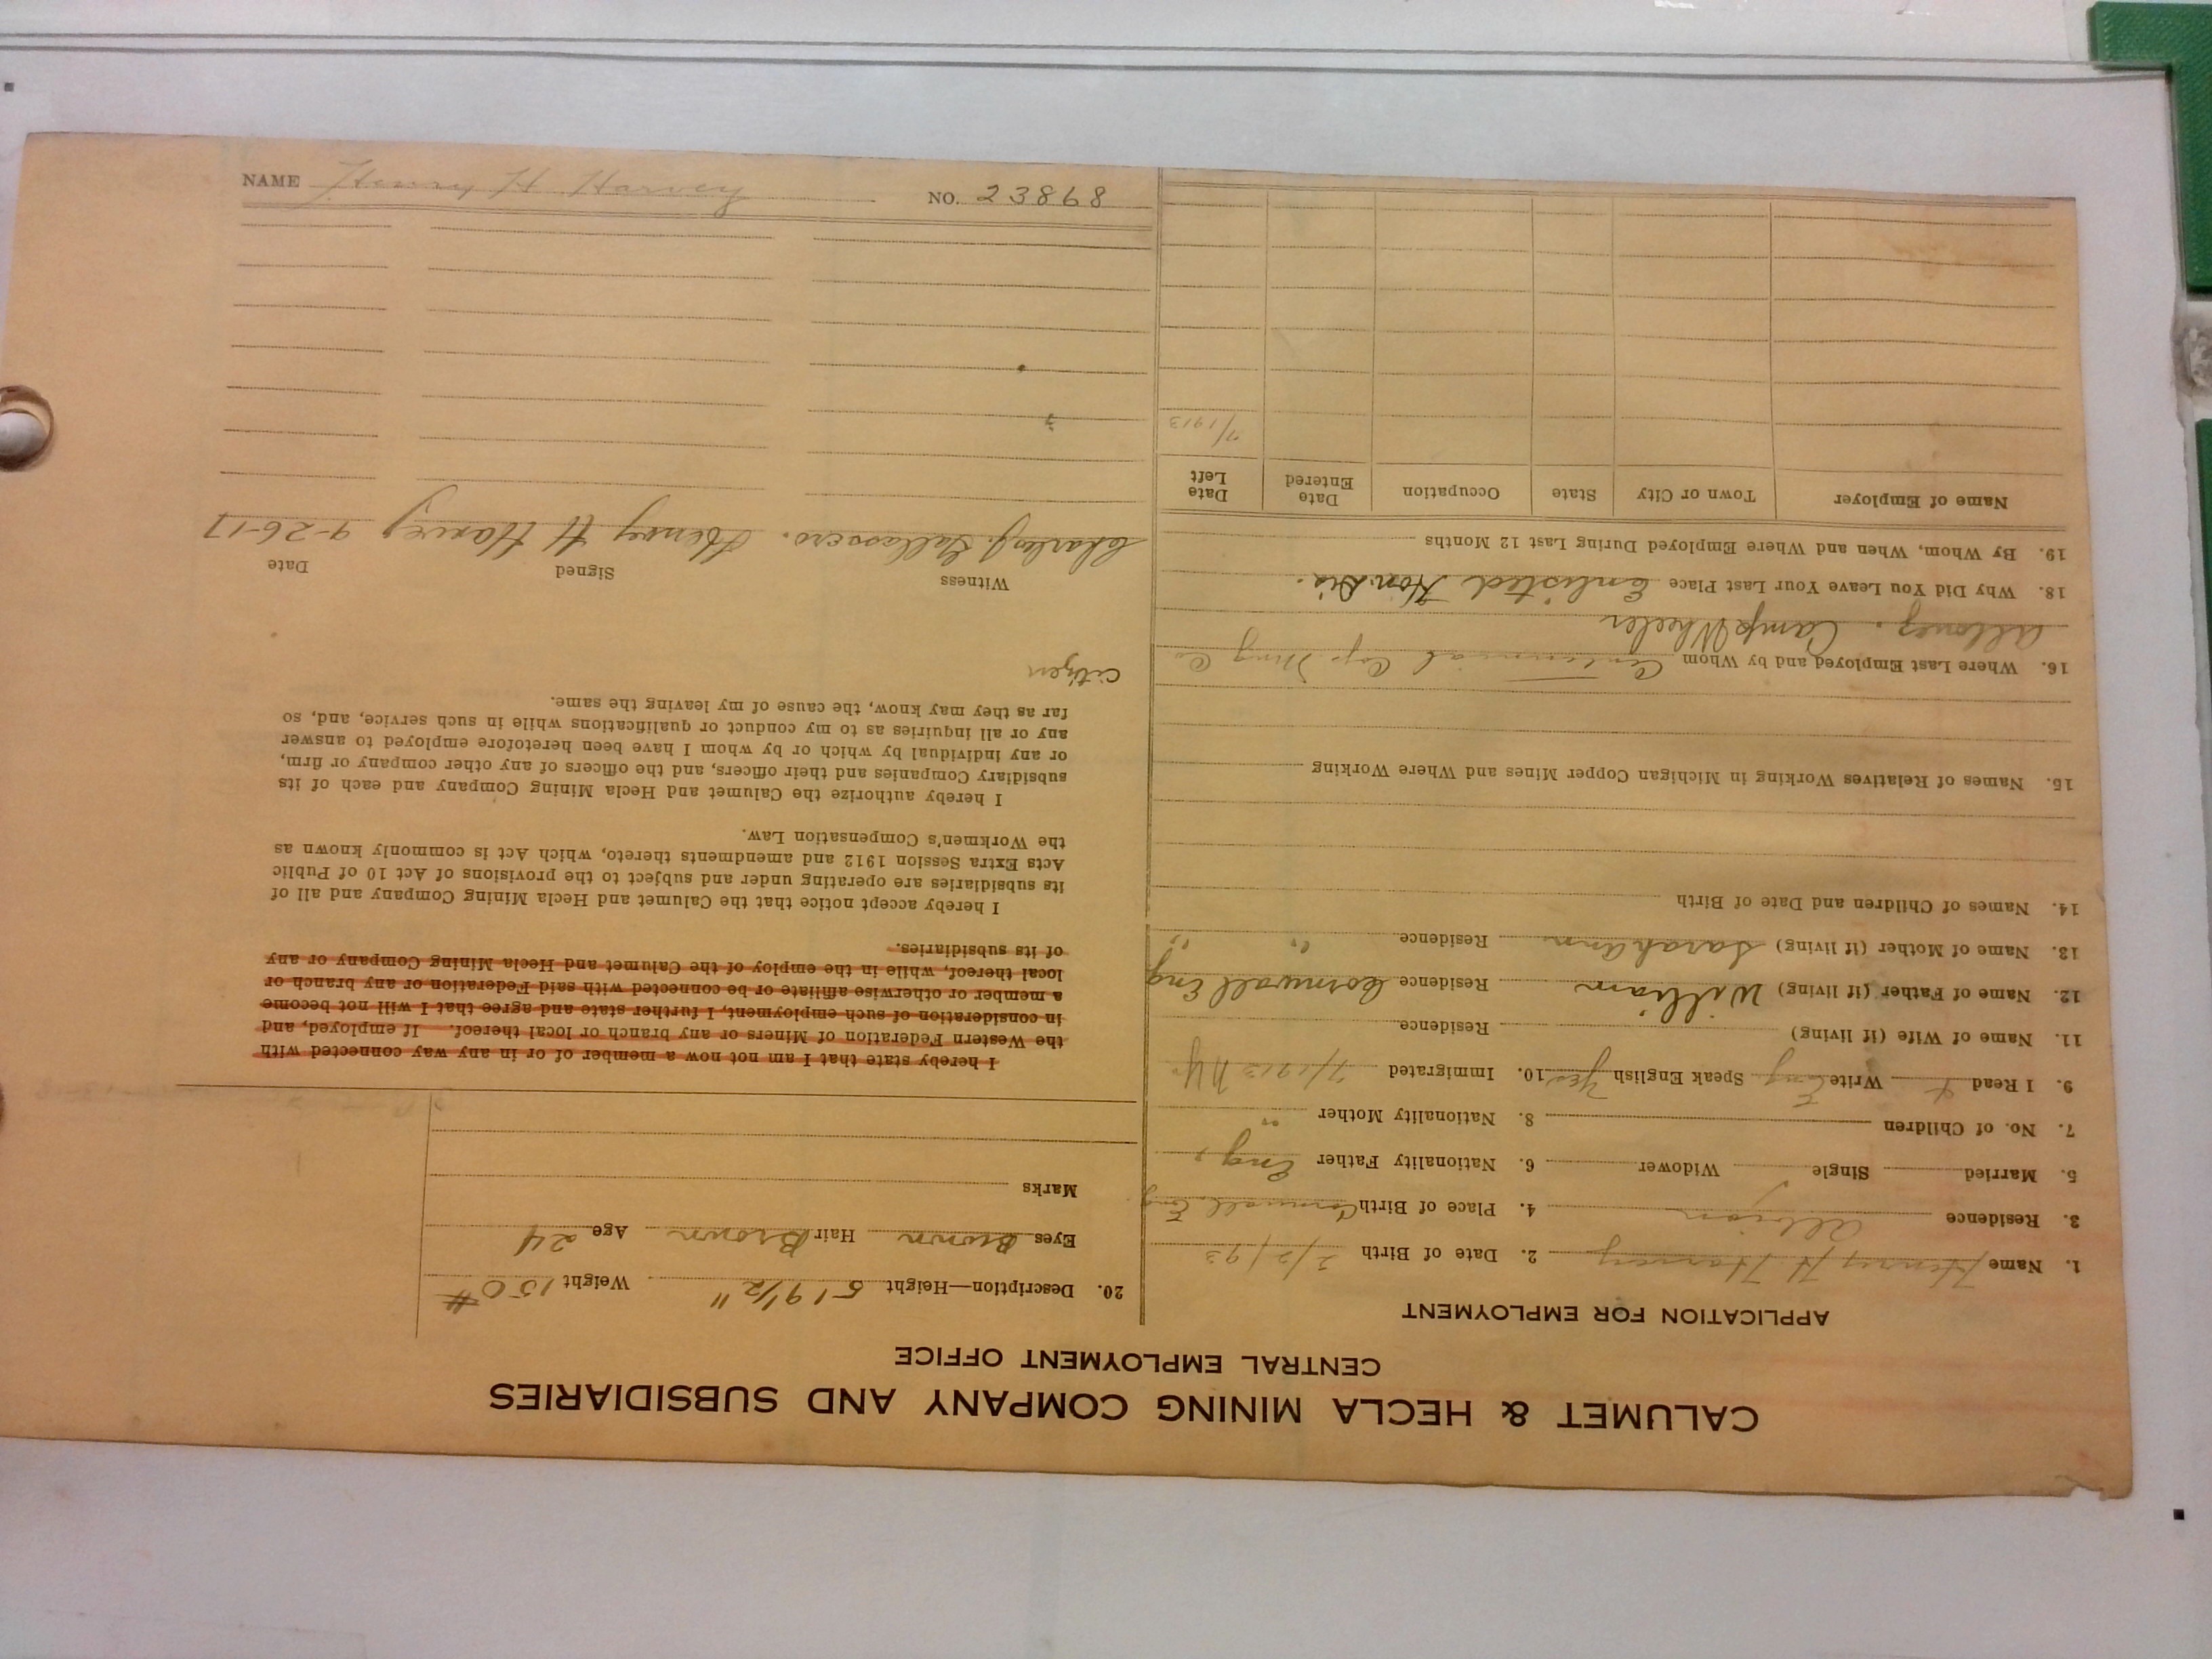 CALUMET & HECLA MINING COMPANY AND SUBSIDIARIES
CENTRAL EMPLOYMENT OFFICE
APPLICATION FOR EMPLOYMENT
1. Name Henry H Harvey 2. Date of Birth 2/2/93
3. Residence Albion 4. Place of Birth Cornwall Eng
5. Married Single Widower 6. Nationality Father Eng.
7. No. of Children 8. Nationality Mother "
9. I Read Write Eng Speak English Yes 10. Immigrated 7/1913 NY
11. Name of Wife (if living) Residence
12. Name of Father (if living) William Residence Cornwall Eng
13. Name of Mother (if living) Sarah Ann Residence " "
14. Names of Children and Date of Birth
15. Names of Relatives Working in Michigan Copper Mines and Where Working
16. Where Last Employed and by Whom Centennial Cop. Ming Co
Allouez. Camp Wheeler
18. Why Did You Leave Your Last Place Enlisted Hon. Dis.
19. By Whom, When and Where Employed During Last 12 Months
Name of Employer Town or City State Occupation Date Entered Date Left
7/1913
20. Description—Height 5' 9 1/2" Weight 150 #
Eyes Brown Hair Brown Age 24
Marks
I hereby state that I am not now a member of or in any way connected with
the Western Federation of Miners or any branch or local thereof. If employed, and
in consideration of such employment, I further state and agree that I will not become
a member or otherwise affiliate or be connected with said Federation or any branch or
local thereof, while in the employ of the Calumet and Hecla Mining Company or any
of its subsidiaries.
I hereby accept notice that the Calumet and Hecla Mining Company and all of
its subsidiaries are operating under and subject to the provisions of Act 10 of Public
Acts Extra Session 1912 and amendments thereto, which Act is commonly known as
the Workmen's Compensation Law.
I hereby authorize the Calumet and Hecla Mining Company and each of its
subsidiary Companies and their officers, and the officers of any other company or firm,
or any individual by which or by whom I have been heretofore employed to answer
any or all inquiries as to my conduct or qualifications while in such service, and, so
far as they may know, the cause of my leaving the same.
Citizen
Witness Signed Date
Henry H Harvey 9-26-17
NAME Henry H Harvey NO. 23868